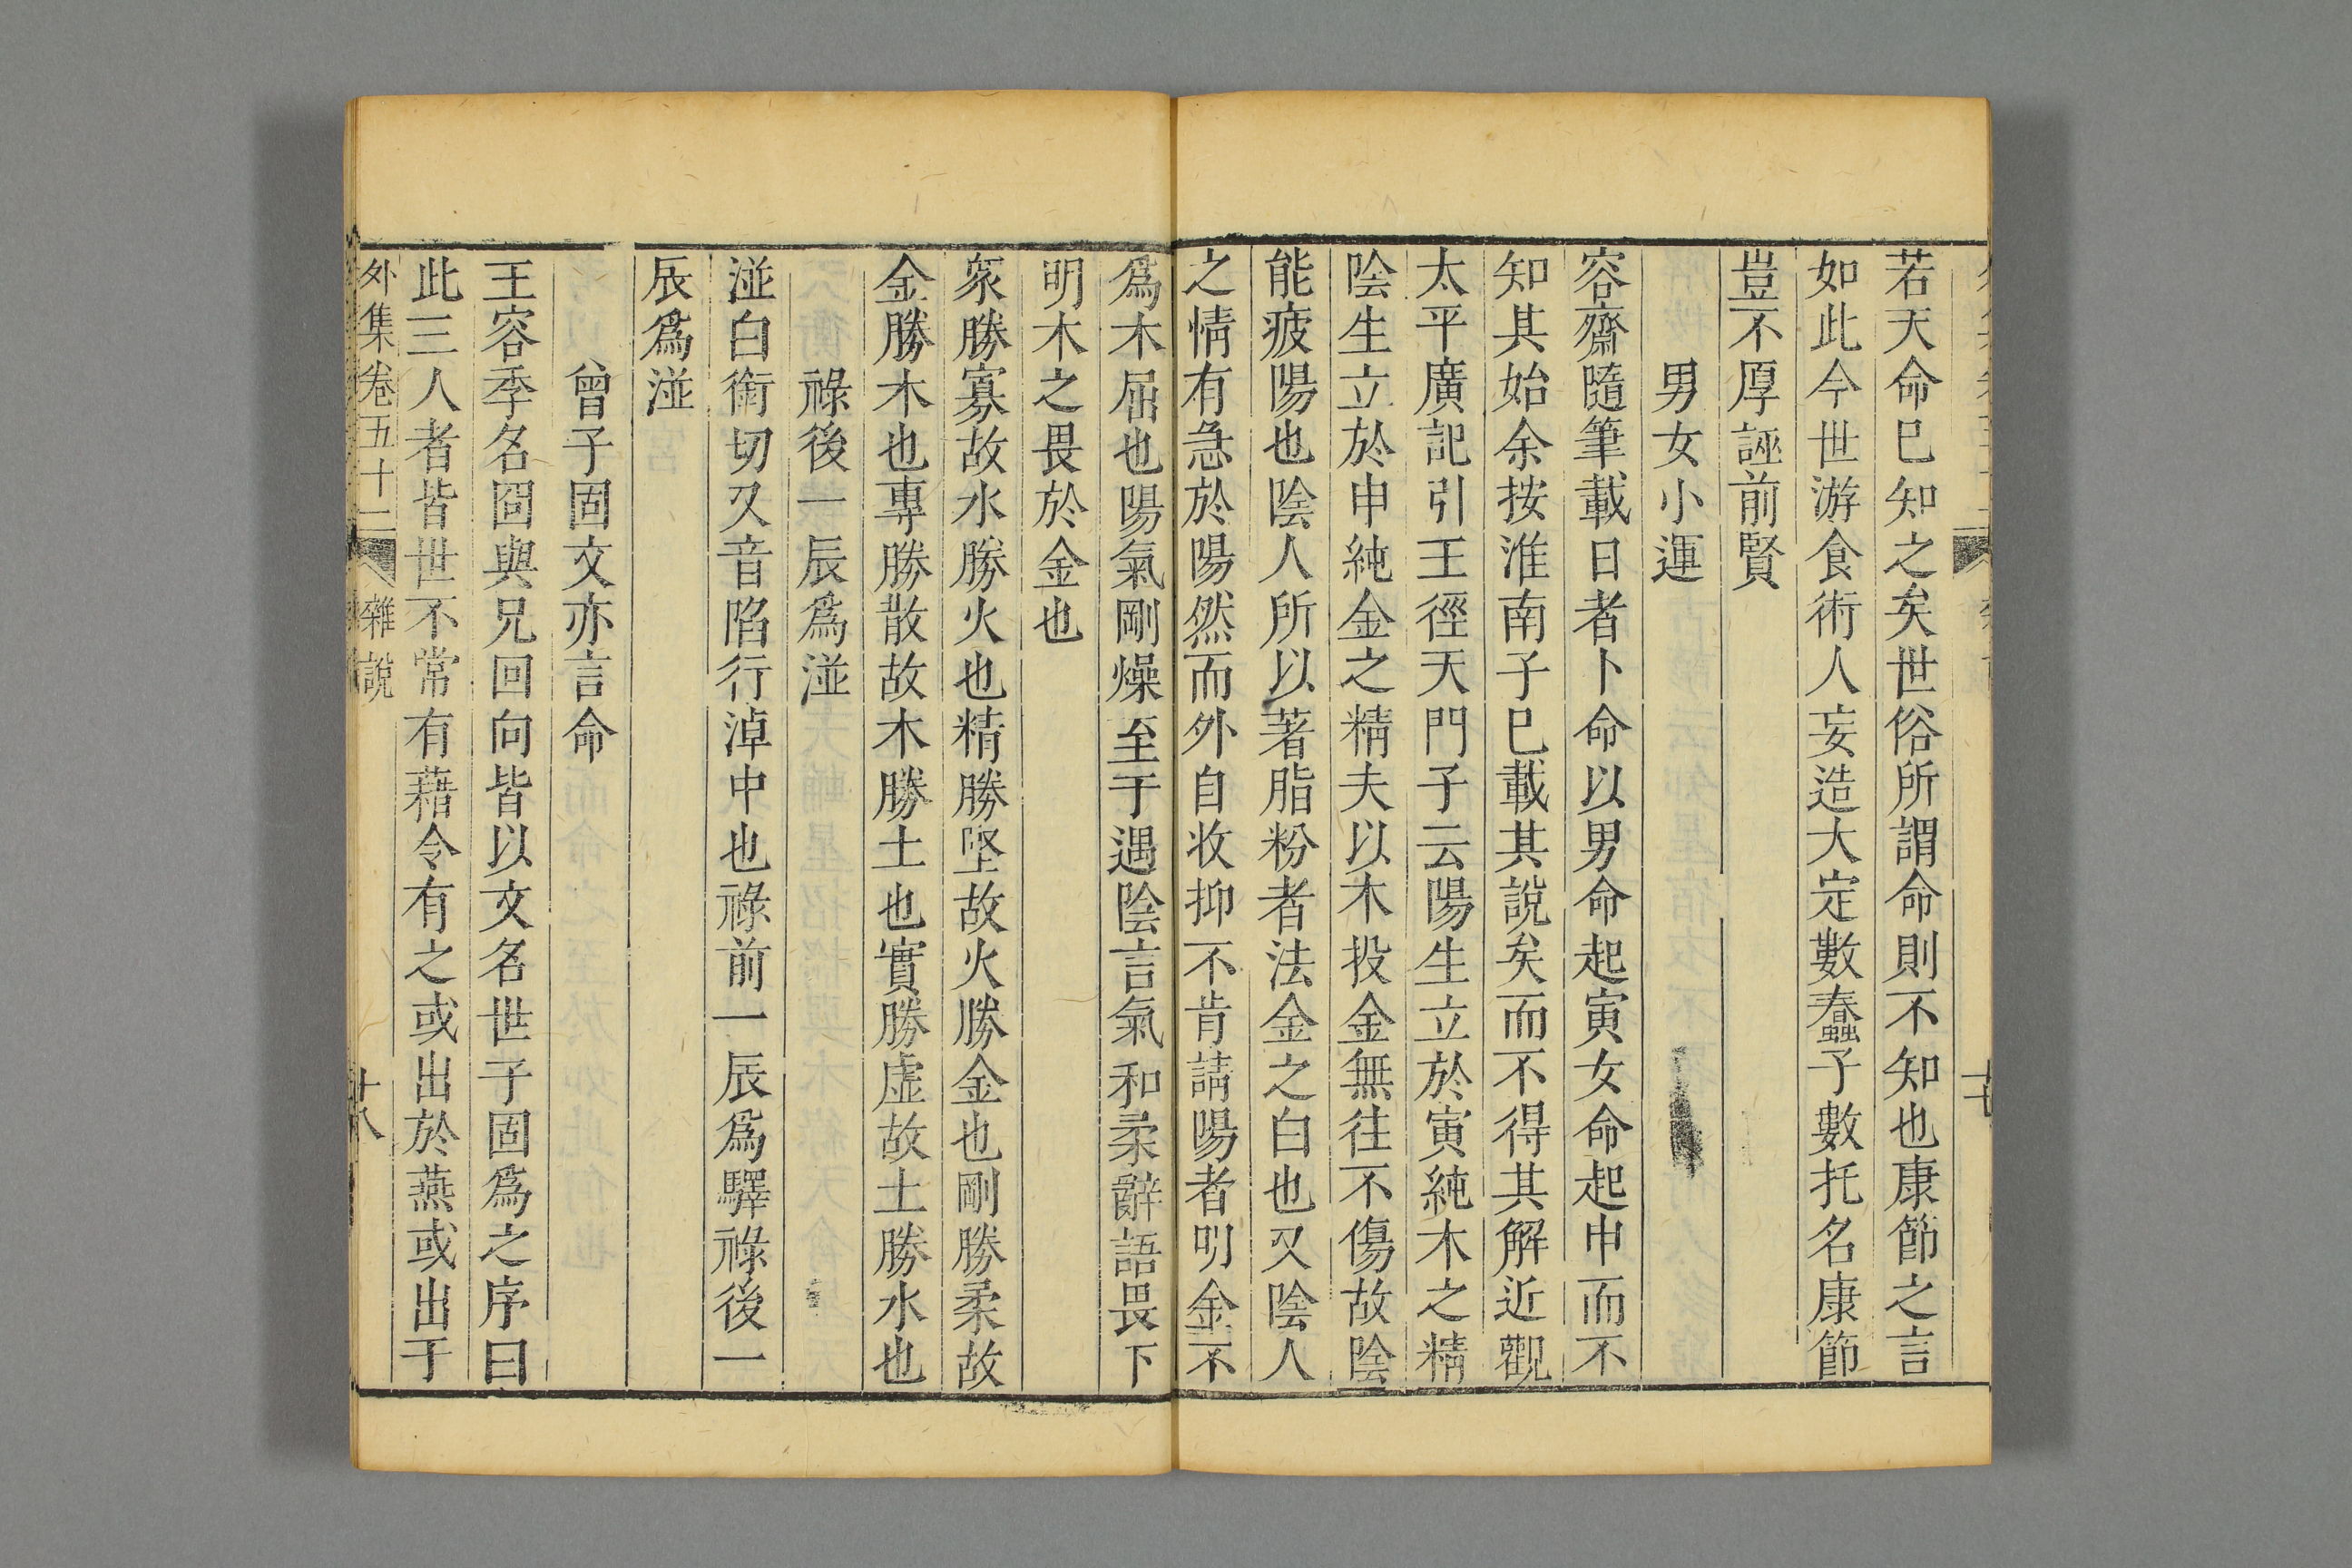 若天命已知之矣世俗所謂命則不知也康節之言
如此今世游食術人妄造大定數蠢子數托名康節
豈不厚誣前賢
男女小運
容齋隨筆載日者卜命以男命起寅女命起申而不
知其始余按淮南子已載其說矣而不得其解近觀
太平廣記引王徑天門子云陽生立於寅純木之精
陰生立於申純金之精夫以木投金無往不傷故陰
能疲陽也陰人所以著脂粉者法金之白也又陰人
之情有急於陽然而外自收抑不肯請陽者明金不
爲木屈也陽氣剛燥至于遇陰言氣和柔辭語畏下
明木之畏於金也
衆勝寡故水勝火也精勝堅故火勝金也剛勝柔故
金勝木也專勝散故木勝土也實勝虛故土勝水也
祿後一辰爲湴
湴白銜切又音陷行淖中也祿前一辰爲驛祿後一
辰爲湴
曾子固文亦言命
王容季名囧與兄回向皆以文名世子固爲之序曰
此三人者皆世不常有藉令有之或出於燕或出于
外集卷五十二 雜說 十八